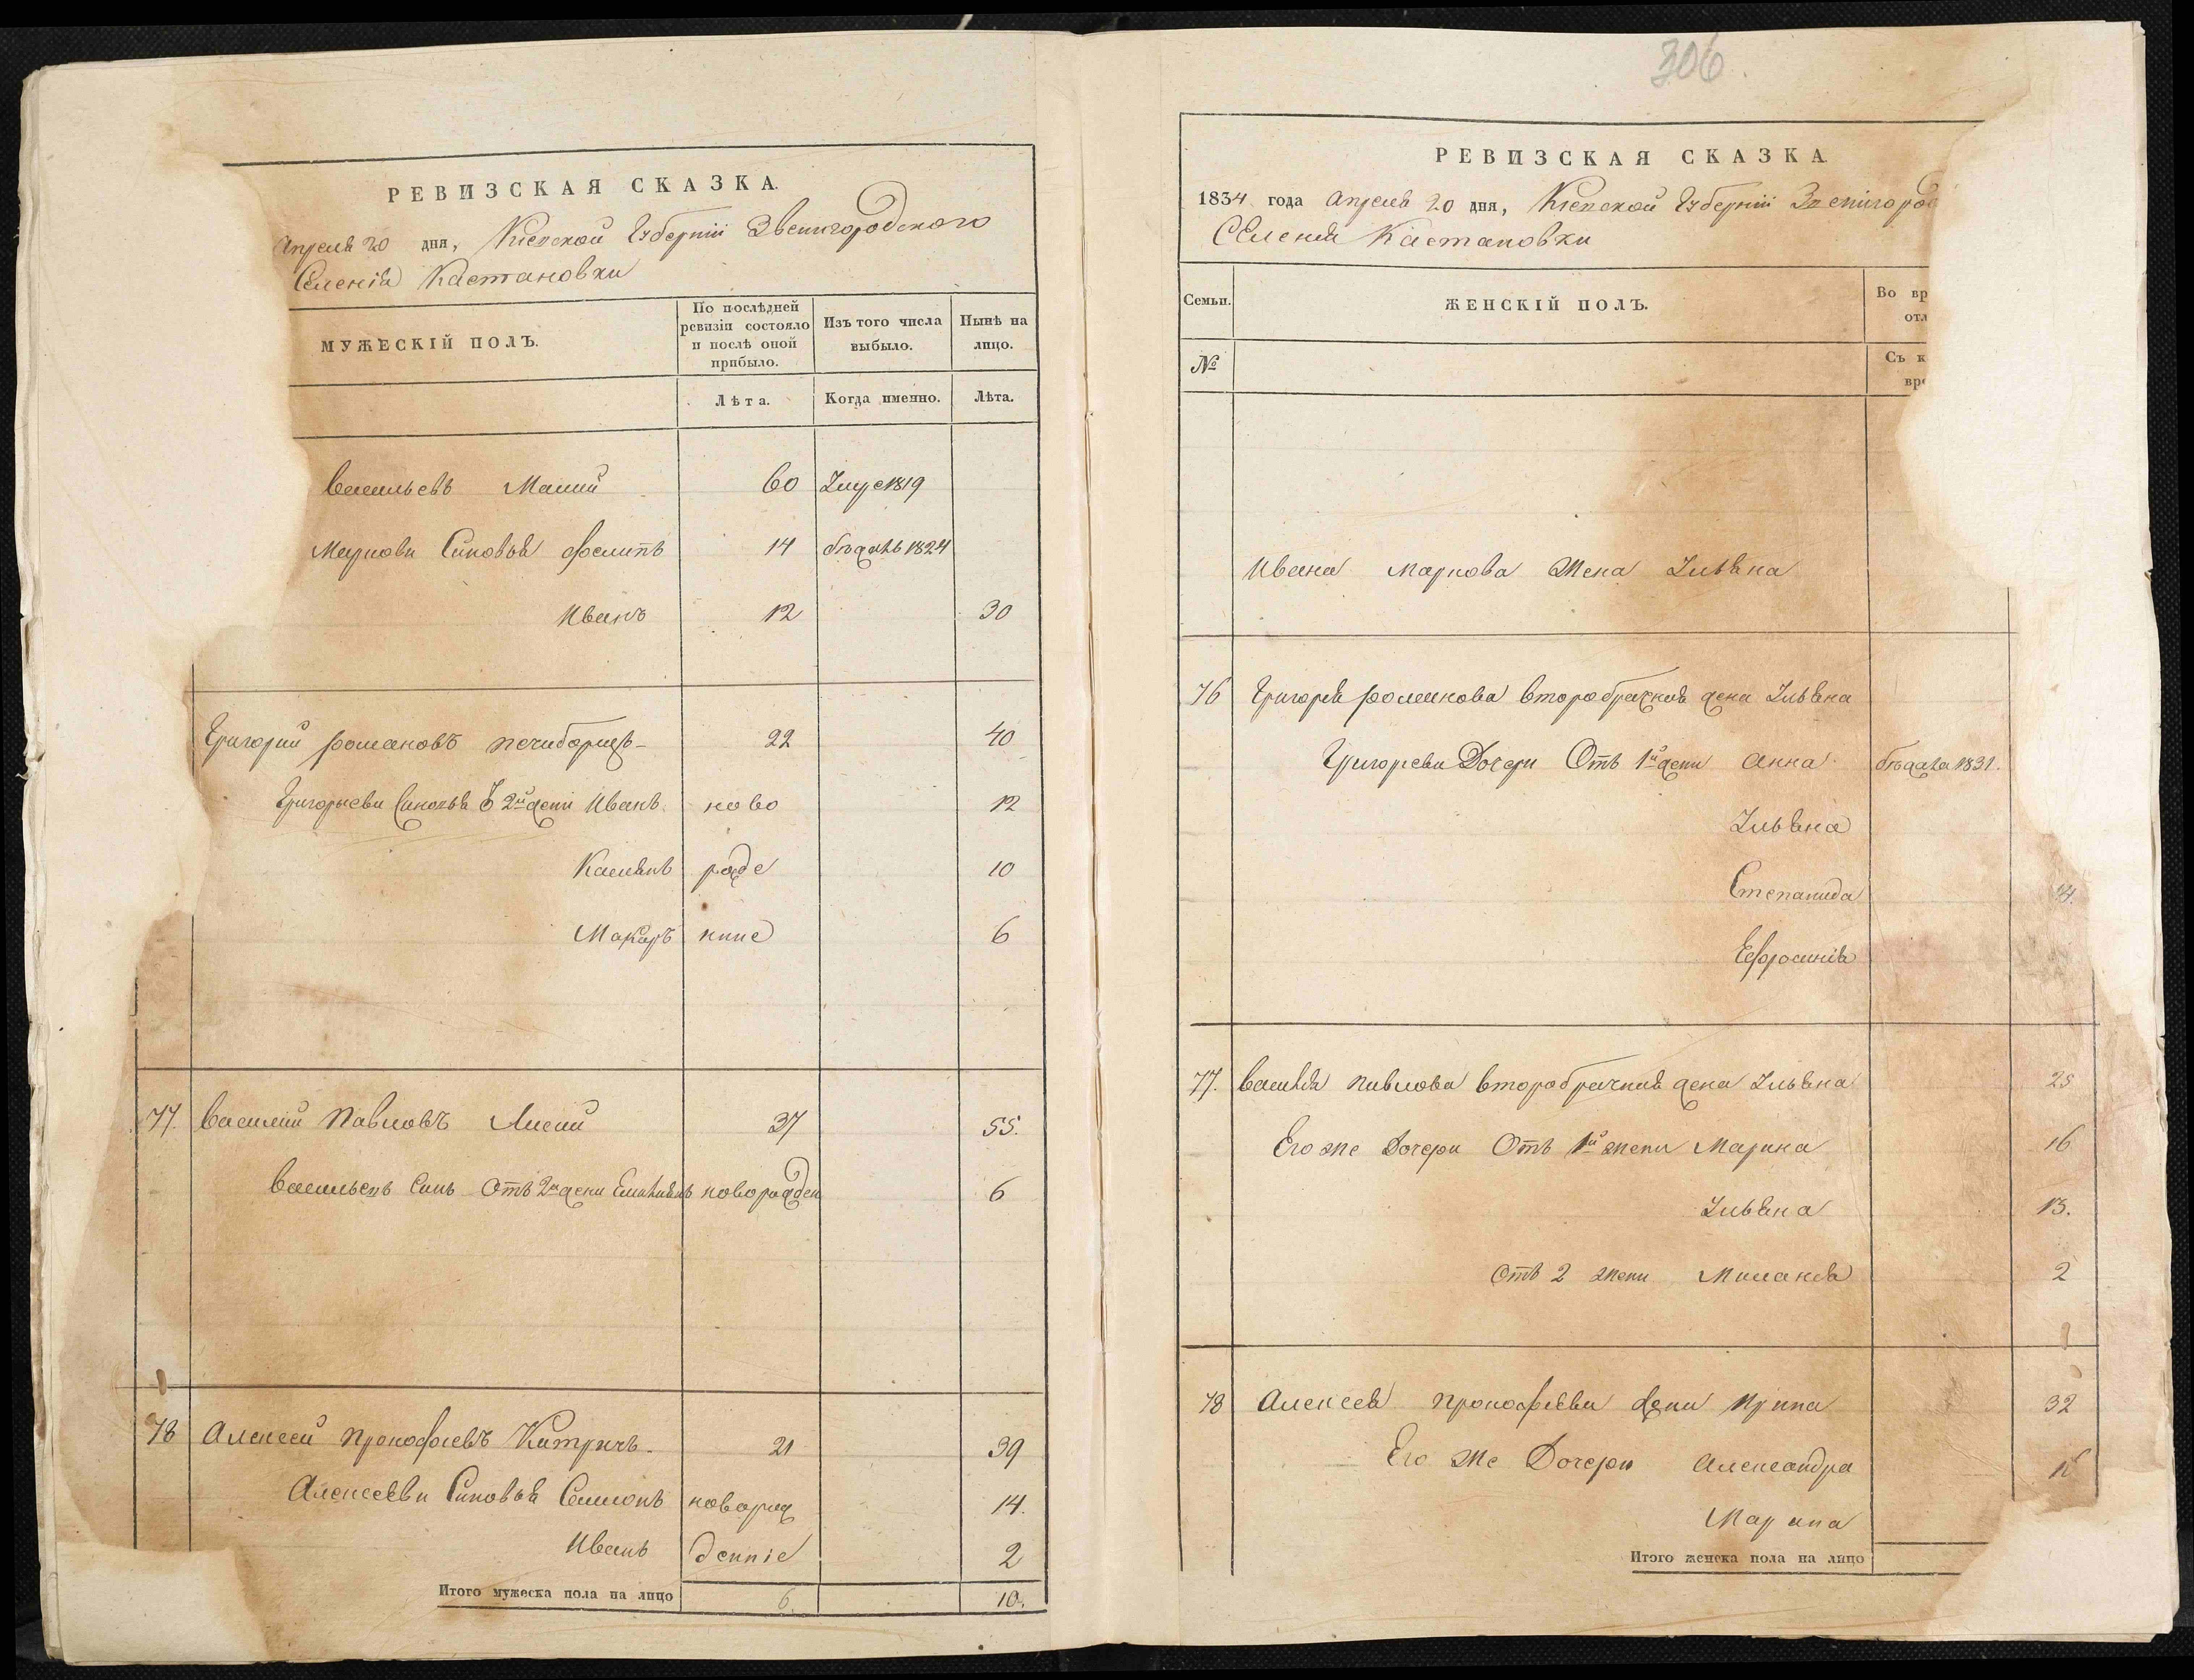 306
РЕВИЗСКАЯ СКАЗКА.
Апреля 20 дня, Кіевской Губерніи Звенигородского
Селенія Кастановки
МУЖЕСКІЙ ПОЛЪ.
По послѣдней ревизіи состояло и послѣ оной прибыло.
Изъ того числа выбыло.
Нынѣ на лицо.
Лѣта.
Когда именно.
Лѣта.
Васильевъ 60 1819
Маркови Синовья Филипъ 14 1824
Иванъ 12 30
Григорий Романовъ 22 40
Григорьеви Синовья 2й жени Иванъ ново 12
Касиянъ рожде 10
Макаръ ние 6
77. Василий Павловъ Лисий 37 55.
Васильевъ Синъ Отъ 2й жени новорожден 6
78 Алексей Прокофиевъ 21 39
Алексееви Синовья Семионъноворож 14.
Иванъденние 2
Итого мужеска пола на лицо 6. 10.
РЕВИЗСКАЯ СКАЗКА.
1834 года Апреля 20 дня, Кіевской Губерніи Звенигород
Селения Кастановки
Семьи.
ЖЕНСКІЙ ПОЛЪ.
Во вр
отл
№
Съ к
вре
Ивана Маркова Жена Ульяна
76 Григория Романова второбрачная жена Ульяна
Григореви Дочери Отъ 1й жени Анна 1831.
Ульяна
Степанида
Ефросинія
77. Василия Павлова второбрачная жена Ульяна 25
Его же Дочери Отъ 1й жени Марина 16
Ульяна 13.
Отъ 2 жени Милания 2
78 Алексея Прокофиева Жена Ирина 32
Его же Дочери Александра
Марина
Итого женска пола на лицо